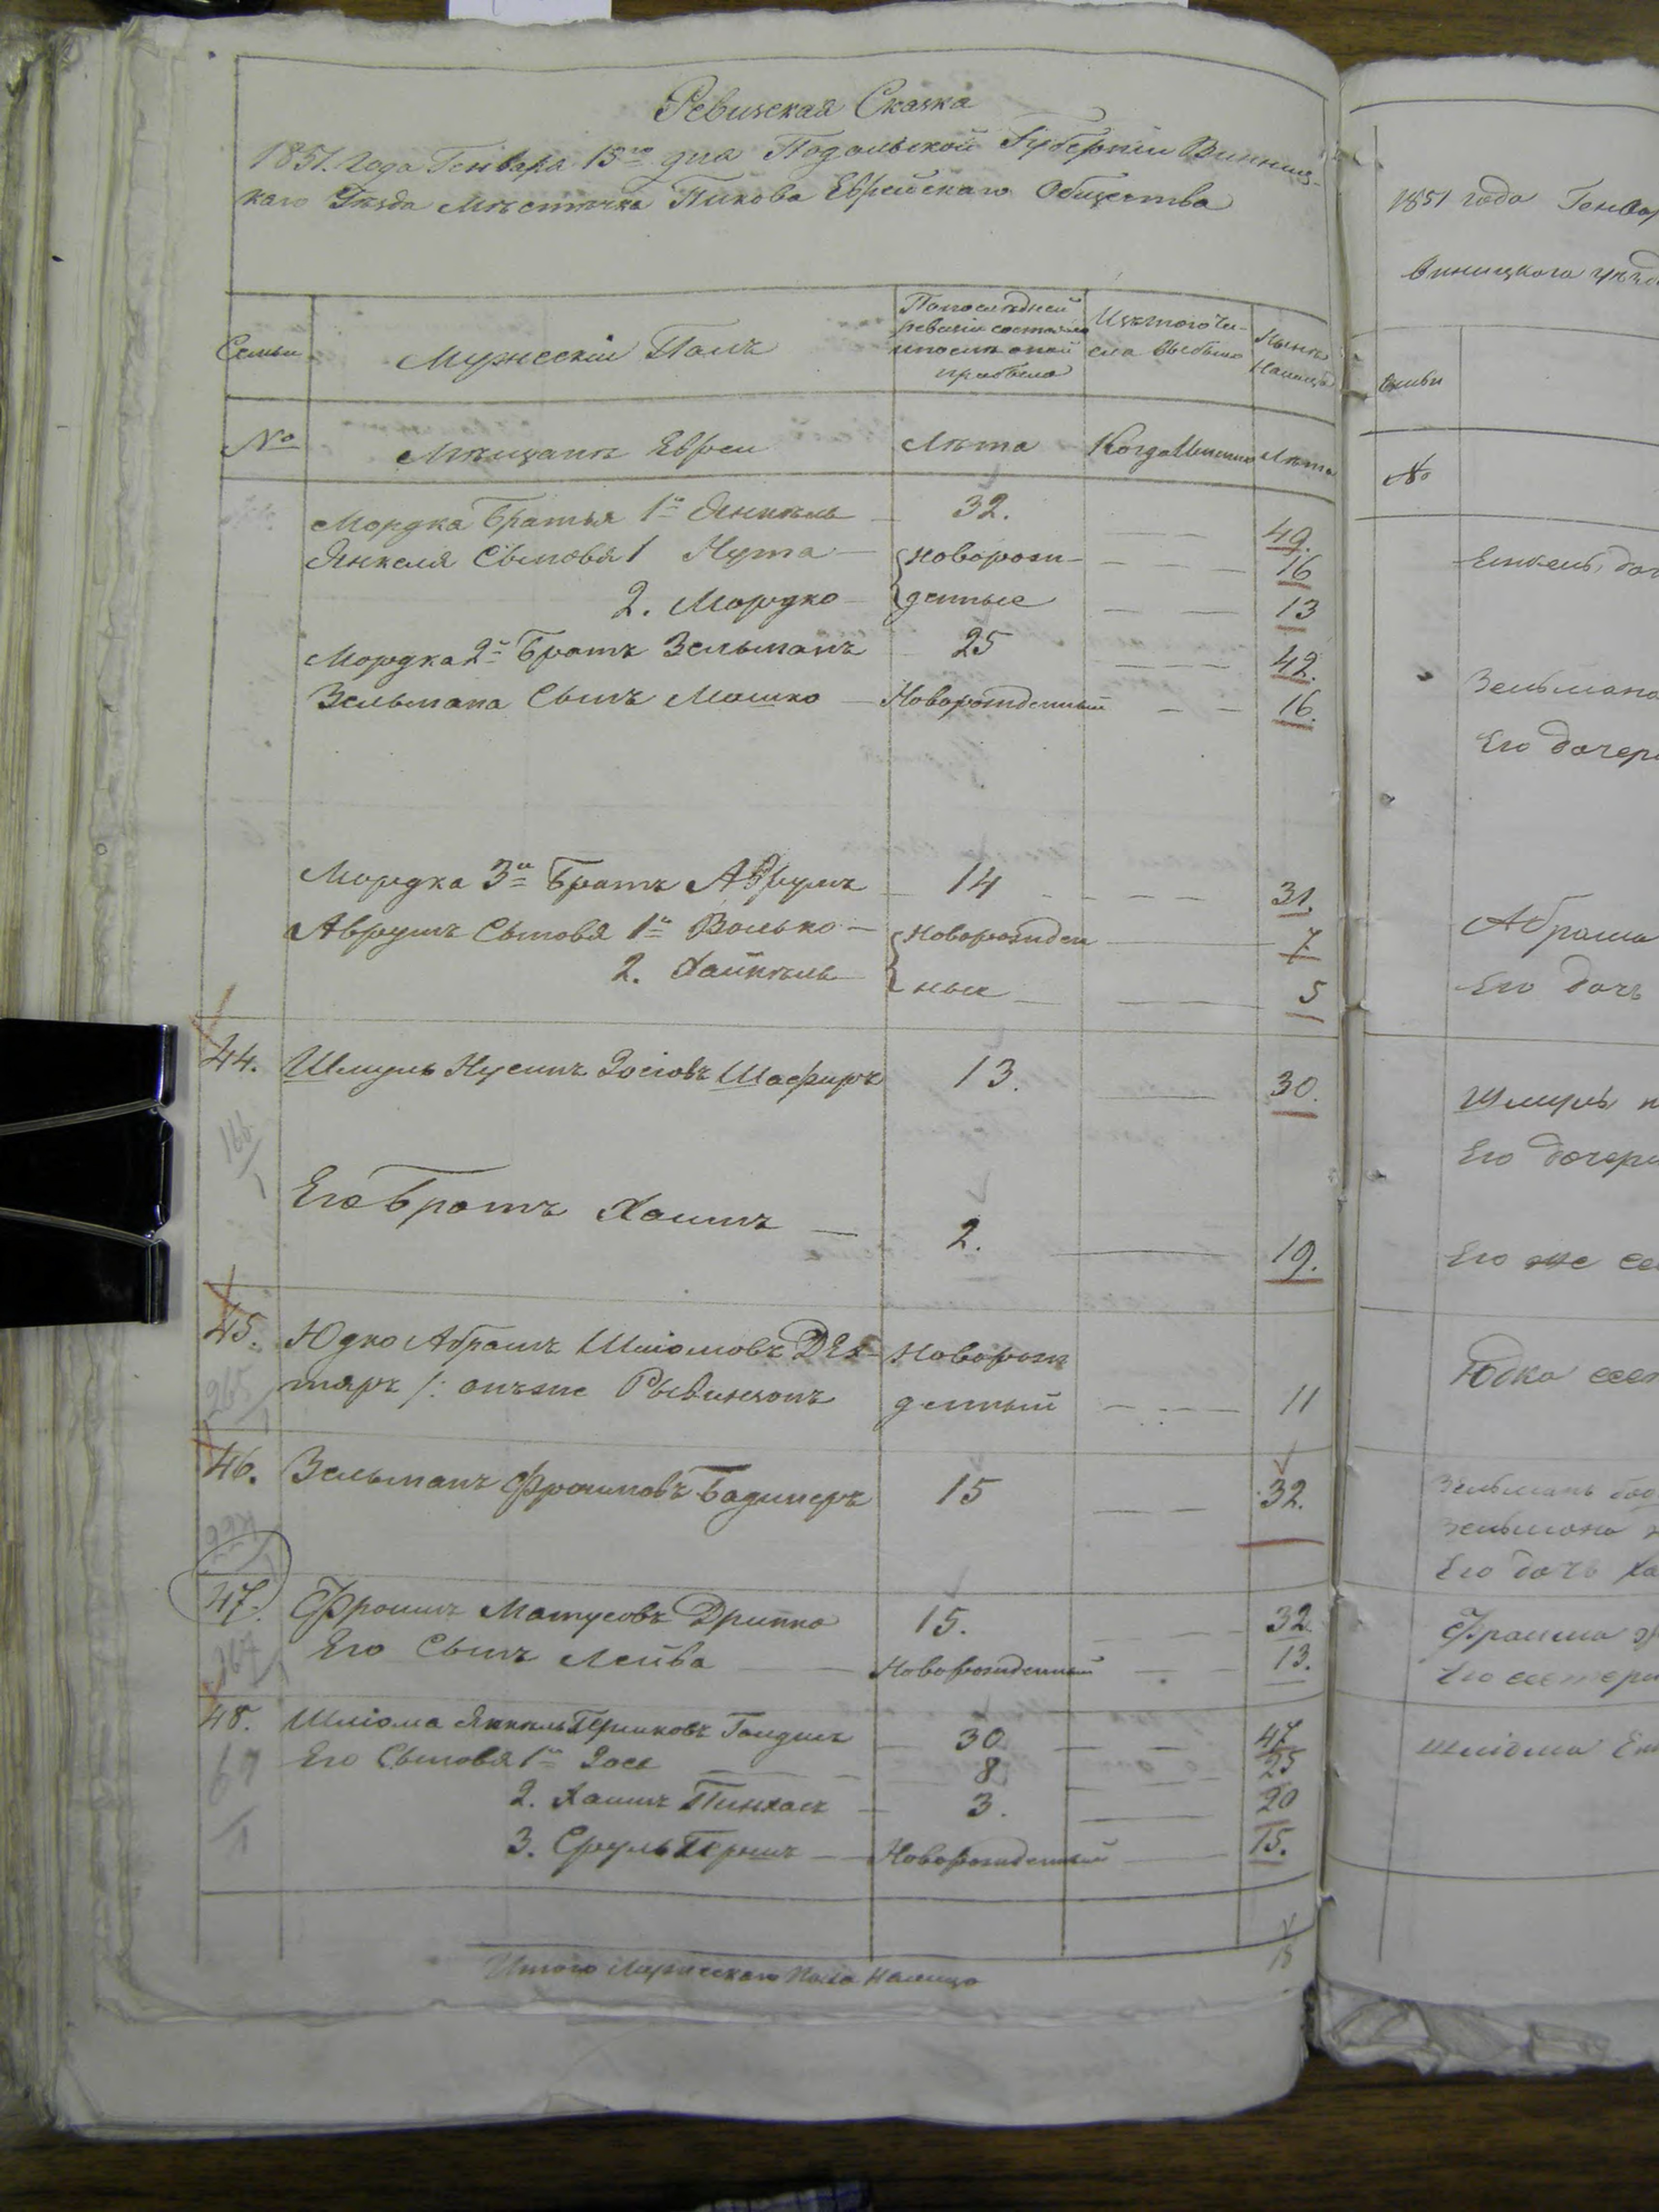 Ревизская Сказка
1851. Года Генваря 15го дня Подольской Губернии Винниц-
каго Уѣзда Мѣстечка Пикова Еврейскаго Общества
Семьи
Мужескій Полъ
По последней
ревизіи состояло
и после оной
прибыло
Изъ того чи-
сла выбыло
Нынѣ
Налицо
№
Мѣщанъ Евреи
Лѣта
Когда Именно
Лѣта
Мордка Братья 1й Янкель 32. 49.
Янкеля Сыновья 1 Нута Новорож- 16
2. Мордко денные 13
Мордка 2й Братъ Зельманъ 25 42.
Зельмана Сынъ Мошко Новорожденный 16.
Мордка 3й Братъ Аврумъ 14 31.
Аврумъ Сыновья 1й Волько Новорожден 7
2. Хайкель ные 5
44. Шмуль Нусинъ Іосіовъ Шафиръ 13. 30.
166
1
Его Братъ Хаимъ 2. 19.
45. Юдко Абрамъ Шліомовъ Дех- Новорож
265
1
тяръ /: онъ же Рывинзонъ денный 11
46. Зельманъ Фроимовъ Бадинеръ 15 32.
47. Фроимъ Матусовъ Дрипко 15. 32.
267
1
Его Сынъ Лейба Новорожденный 13.
48. Шліома Янкель Гершковъ Гандигъ 30 47
Его Сыновья 1й Іось 8 25
2. Хаимъ Пинхасъ 3. 20
3. Сруль Гершъ Новорожденный 15.
Итого Мужескаго Пола Налицо 18
1851 года Генвар
Винницкого уѣзд
Семьи
№
Янкель, доч
Зельмана
Его дочери
Абрама
Его дочь
Шмуль
Его дочери
Его же се
Юдка сест
Зельманъ
Зельмана
Его дочь Ха
Фроима
Его сестери
Шліома